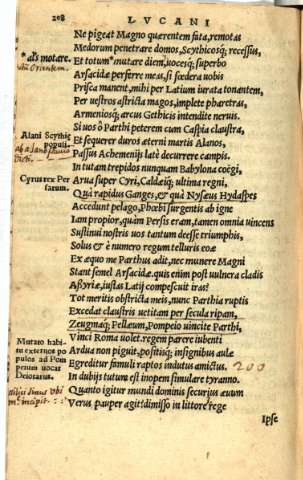 208
LVCANI
Ne pigeat Magno quærentem fata, remotas
Medorum penetrare domos, Scythicosq; recessus,
* al's motare.
Et totum * mutare diem, uocesq; superbo
Arsacidæ perferre meas, si fœdera uobis
Prisca manent, mihi per Latium iurata tonantem,
Per uestros astricta magos, implete pharetras,
Armeniosq; arcus Gethicis intendite neruis.
Alani Scythiæ
populi.
Si uos ô Parthi peterem cum Caspia claustra,
Et sequerer duros æterni martis Alanos,
Passus Achemenijs latè decurrere campis.
In tutam trepidos nunquam Babylona coëgi,
Cyrus rex Per
sarum.
Arua super Cyri, Caldæiq; ultima regni,
Quà rapidus Ganges, & quà Nysæus Hydaspes
Accedunt pelago, Phœbi surgentis ab igne
Iam propior, quàm Persis eram, tamen omnia uincens
Sustinui nostris uos tantum deesse triumphis,
Solus è numero regum telluris eoæ
Ex æquo me Parthus adit, nec munere Magni
Stant semel Arsacidæ. quis enim post uulnera cladis
Assyriæ, iustas Latij compescuit iras?
Tot meritis obstricta meis, nunc Parthia ruptis
Excedat claustris uetitam per secula ripam,
Zeugmaq; Pellæum, Pompeio uincite Parthi,
Mutato habi-
tu externos po
pulos ad Pom
peium uocat
Deiotarus.
Vinci Roma uolet. regem parere iubenti
Ardua non piguit, positisq; insignibus aulæ
Egreditur famuli raptos indutus amictus.
200
In dubijs tutum est inopem simulare tyranno.
Quanto igitur mundi dominis securius æuum
Verus pauper agit! dimisso in littore rege
Ipse